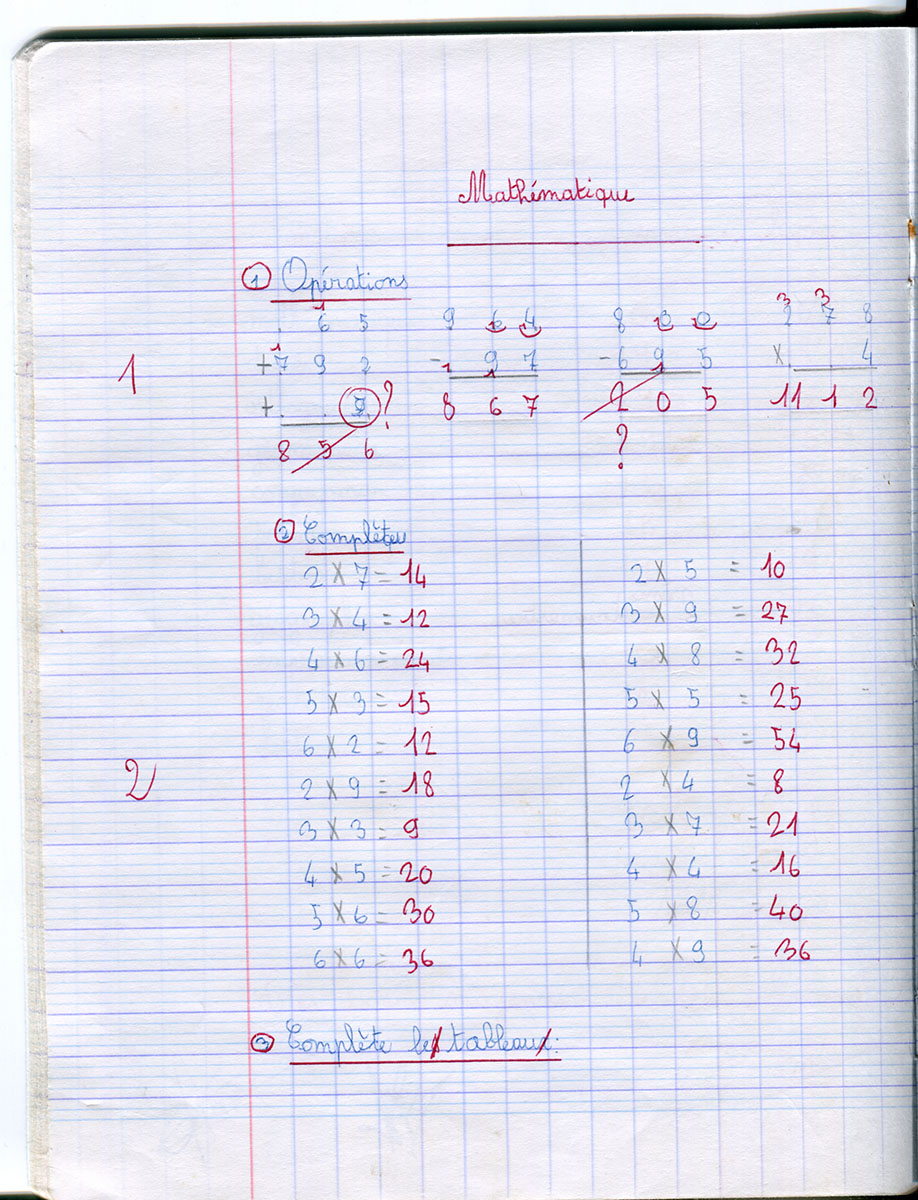 Mathématique
1 Opérations
1 3 3
. 6 5 9 6 4 8 0 0 2 7 8
1
+ 7 9 2 - 1 9 7 - 6 9 5 x . . 4
1 1 1
+ . . ? 8 6 7 2 0 5 11 1 2
8 5 6 ?
2
2 x 7 = 14 2 x 5 = 10
3 x 4 = 12 3 x 9 = 27
4 x 6 = 24 4 x 8 = 32
5 x 3 = 15 5 x 5 = 25
6 x 2 = 12 6 x 9 = 54
2
2 x 9 = 18 2 x 4 = 8
3 x 3 = 9 3 x 7 = 21
4 x 5 = 20 4 x 4 = 16
5 x 6 = 30 5 x 8 = 40
6 x 6 = 36 4 x 9 = 36
3 Complète les tableaux: